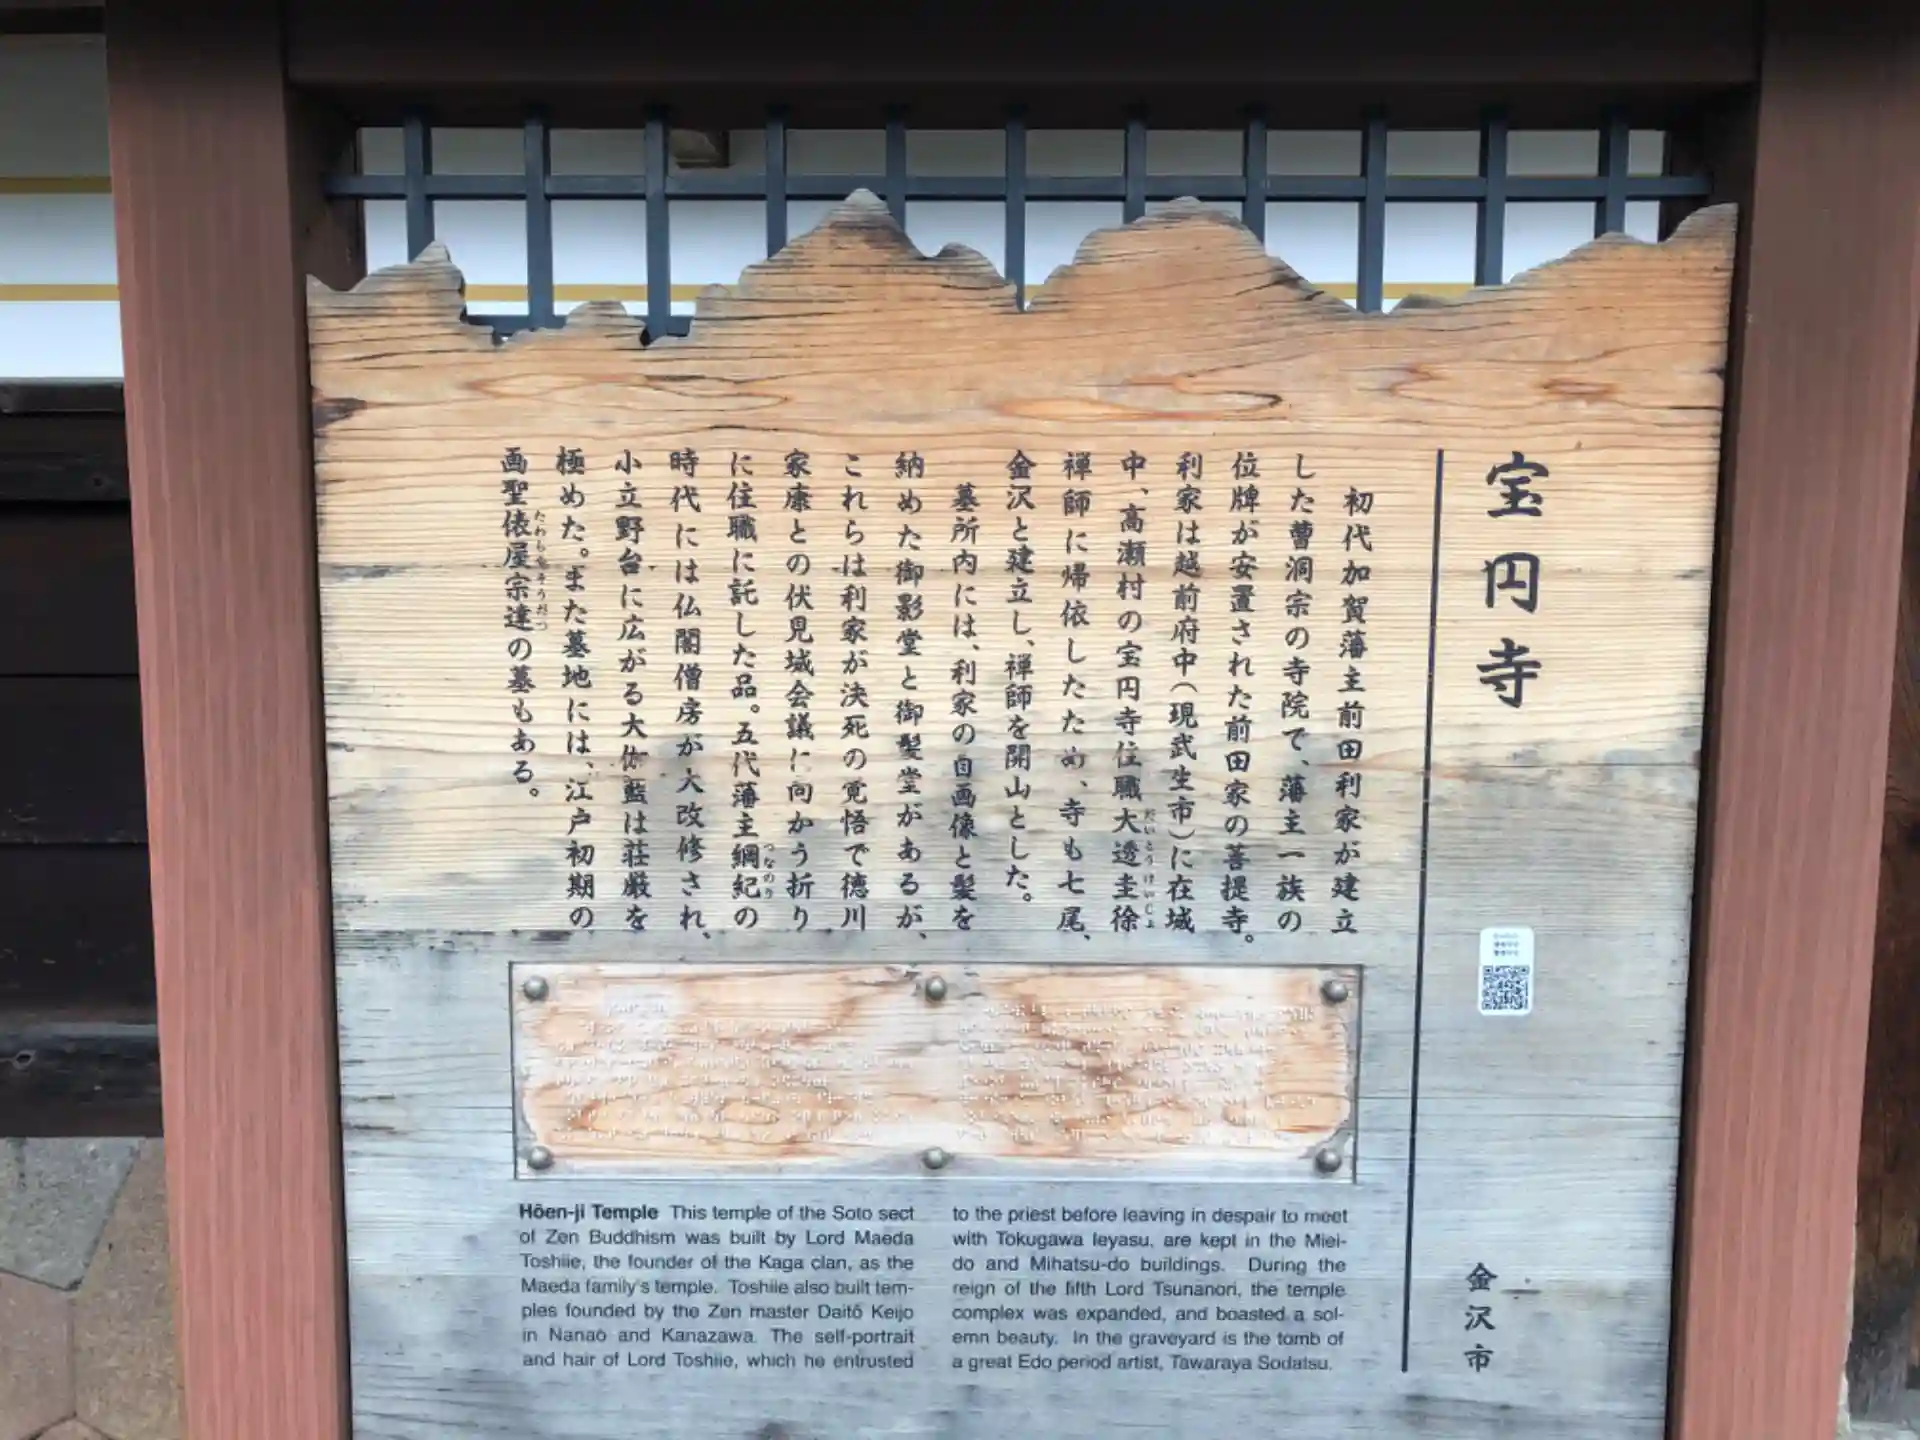 宝円寺
初代加賀藩主前田利家が建立
した曹洞宗の寺院で、藩主一族の
位牌が安置された前田家の菩提寺。
利家は越前府中(現武生市)に在城
中、高瀬村の宝円寺住職大透圭徐
だいとうけいじょ
禅師に帰依したため、寺も七尾、
金沢と建立し、禅師を開山とした。
墓所内には、利家の自画像と髪を
納めた御影堂と御髪堂があるが、
これらは利家が決死の覚悟で徳川
家康との伏見城会議に向かう折り
に住職に託した品。五代藩主綱紀の
つなのり
時代には仏閣僧房が大改修され、
小立野台に広がる大伽藍は荘厳を
極めた。また墓地には、江戸初期の
画聖俵屋宗達の墓もある。
たわらやそうだつ
金沢市
Hōen-ji Temple This temple of the Soto sect
of Zen Buddhism was built by Lord Maeda
Toshiie, the founder of the Kaga clan, as the
Maeda family's temple. Toshiie also built tem-
ples founded by the Zen master Daitō Keijo
in Nanao and Kanazawa. The self-portrait
and hair of Lord Toshiie, which he entrusted
to the priest before leaving in despair to meet
with Tokugawa Ieyasu, are kept in the Miei-
do and Mihatsu-do buildings. During the
reign of the fifth Lord Tsunanori, the temple
complex was expanded, and boasted a sol-
emn beauty. In the graveyard is the tomb of
a great Edo period artist, Tawaraya Sodatsu.